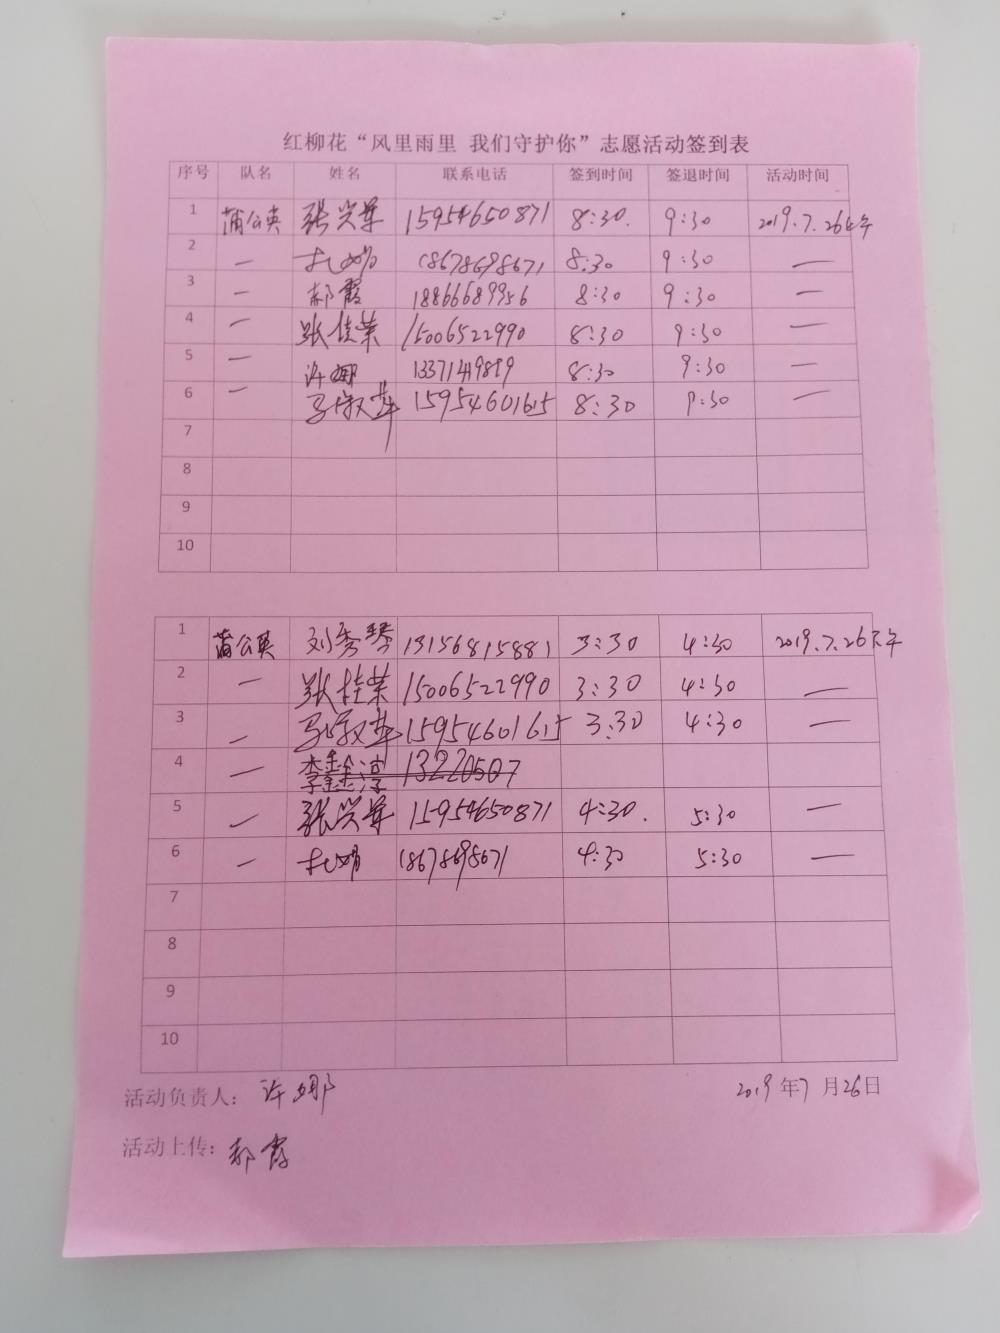 红柳花“风里雨里 我们守护你”志愿活动签到表
序号 队名 姓名 联系电话 签到时间 签退时间 活动时间
1 蒲公英 张兴军 15954650871 8:30. 9:30 2019.7.26上午
2 — 8:30 9:30 —
3 — 郝霞 18866689956 8:30 9:30 —
4 — 张佳荣 15006522990 8:30 9:30 —
5 — 许娜 8:30 9:30 —
6 — 15954601615 8:30 9:30 —
7
8
9
10
1 蒲公英 刘秀琴 13156815881 3:30 4:30 2019.7.26下午
2 — 张桂荣 15006522990 3:30 4:30 —
3 — 15954601615 3:30 4:30 —
4 — 李鑫淳 13220507
5 — 张兴军 15954650871 4:30. 5:30 —
6 — 18678698671 4:30 5:30 —
7
8
9
10
活动负责人: 许娜 2019年7月26日
活动上传: 郝霞